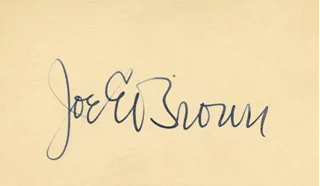 Joe E Brown